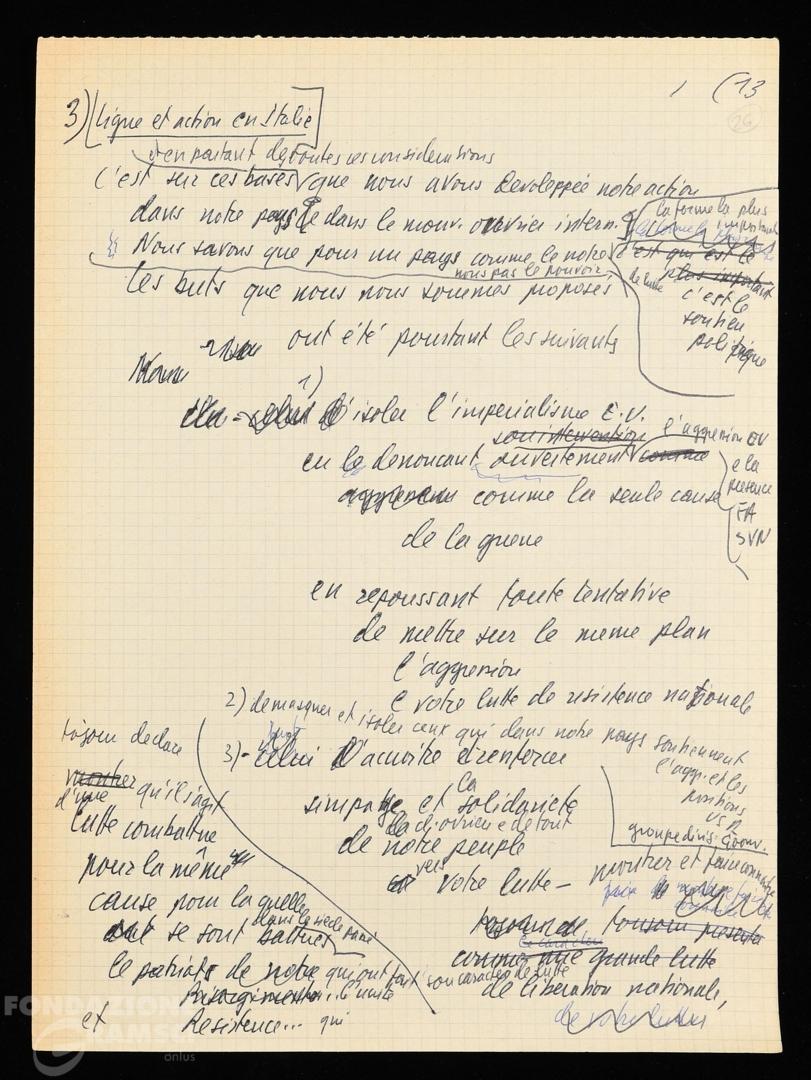 1 (13
26
3) [Ligne et action en Italie]
et en partant de toutes ces considerations
C'est sur ces bases que nous avons devoleppée notre action
dans notre pays e dans le mouv. ouvrier intern.
la forme la plus
importante
Nous savons que pour un pays comme le notre c'est qui est le
nous pas le pouvoir
de lutte
plus important
les buts que nous nous sommes proposés
c'est le
soutien
politique
ont été pourtant les suivants
1)
d'isoler l'imperialisme E.U.
son intervention l'aggression EU
en le denonçant ouvertement comme
e la
presence
FA
SVN
aggresseur comme la seule cause
de la guerre
en repoussant toute tentative
de mettre sur le meme plan
l'aggression
e votre lutte de resistence nationale
2) demasquer et isoler ceux qui dans notre pays soutiennent
l'aggr. et les
positions
USA
groupe dirig. gouv.
3) - celui d'acroitre et renforcer
la
simpatye et solidarieté
la cl. ouvriere e de tout
de notre peuple
vers votre lutte -
montrer et faire connaitre
toujours presenter
le caractere
comme une grande lutte
tout son caractere de lutte
de liberation nationale,
de votre lutte
tojours declare
montrer qu'il s'agit
d'une
lutte combattue
pour la même
cause pour la quelle
dans le siecle passé
se sont battues
le patriots de notre qui ont
Risorgimento.. l'unité
et Resistence... qui
FONDAZIONE
GRAMSCI
onlus